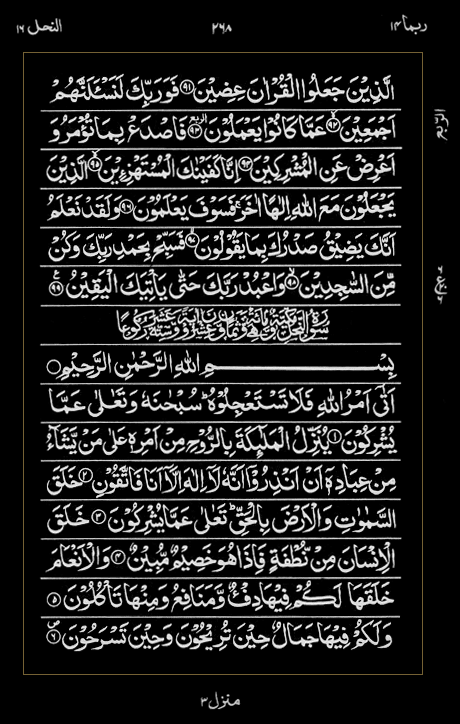 ربما ١٤
٢٦٨
النحل ١٦
الَّذِيۡنَ جَعَلُوا الۡقُرۡاٰنَ عِضِيۡنَ ﴿۹۱﴾ فَوَرَبِّكَ لَنَسۡـَٔلَنَّهُمۡ
اَجۡمَعِيۡنَ ﴿۹۲﴾ عَمَّا كَانُوۡا يَعۡمَلُوۡنَ ﴿۹۳﴾ فَاصۡدَعۡ بِمَا تُؤۡمَرُ وَ
اَعۡرِضۡ عَنِ الۡمُشۡرِكِيۡنَ ﴿۹۴﴾ اِنَّا كَفَيۡنٰكَ الۡمُسۡتَهۡزِءِيۡنَ ﴿۹۵﴾ الَّذِيۡنَ
يَجۡعَلُوۡنَ مَعَ اللّٰهِ اِلٰهًا اٰخَرَ‌ ۚ فَسَوۡفَ يَعۡلَمُوۡنَ ﴿۹۶﴾ وَلَقَدۡ نَعۡلَمُ
اَنَّكَ يَضِيۡقُ صَدۡرُكَ بِمَا يَقُوۡلُوۡنَ ﴿۹۷﴾ فَسَبِّحۡ بِحَمۡدِ رَبِّكَ وَكُنۡ
مِّنَ السّٰجِدِيۡنَ ﴿۹۸﴾ وَاعۡبُدۡ رَبَّكَ حَتّٰى يَاۡتِيَكَ الۡيَقِيۡنُ ﴿۹۹﴾
بِسۡمِ اللّٰهِ الرَّحۡمٰنِ الرَّحِيۡمِ
اَتٰٓى اَمۡرُ اللّٰهِ فَلَا تَسۡتَعۡجِلُوۡهُ‌ ؕ سُبۡحٰنَهٗ وَتَعٰلٰى عَمَّا
يُشۡرِكُوۡنَ ﴿۱﴾ يُنَزِّلُ الۡمَلٰٓٮِٕكَةَ بِالرُّوۡحِ مِنۡ اَمۡرِهٖ عَلٰى مَنۡ يَّشَآءُ
مِنۡ عِبَادِهٖۤ اَنۡ اَنۡذِرُوۡۤا اَنَّهٗ لَاۤ اِلٰهَ اِلَّاۤ اَنَا فَاتَّقُوۡنِ ﴿۲﴾ خَلَقَ
السَّمٰوٰتِ وَالۡاَرۡضَ بِالۡحَـقِّ‌ؕ تَعٰلٰى عَمَّا يُشۡرِكُوۡنَ ﴿۳﴾ خَلَقَ
الۡاِنۡسَانَ مِنۡ نُّطۡفَةٍ فَاِذَا هُوَ خَصِيۡمٌ مُّبِيۡنٌ ﴿۴﴾ وَالۡاَنۡعَامَ
خَلَقَهَا‌ ۚ لَكُمۡ فِيۡهَا دِفۡءٌ وَّمَنَافِعُ وَمِنۡهَا تَاۡكُلُوۡنَ ﴿۵﴾
وَلَكُمۡ فِيۡهَا جَمَالٌ حِيۡنَ تُرِيۡحُوۡنَ وَحِيۡنَ تَسۡرَحُوۡنَ ﴿۶﴾
منزل ٣